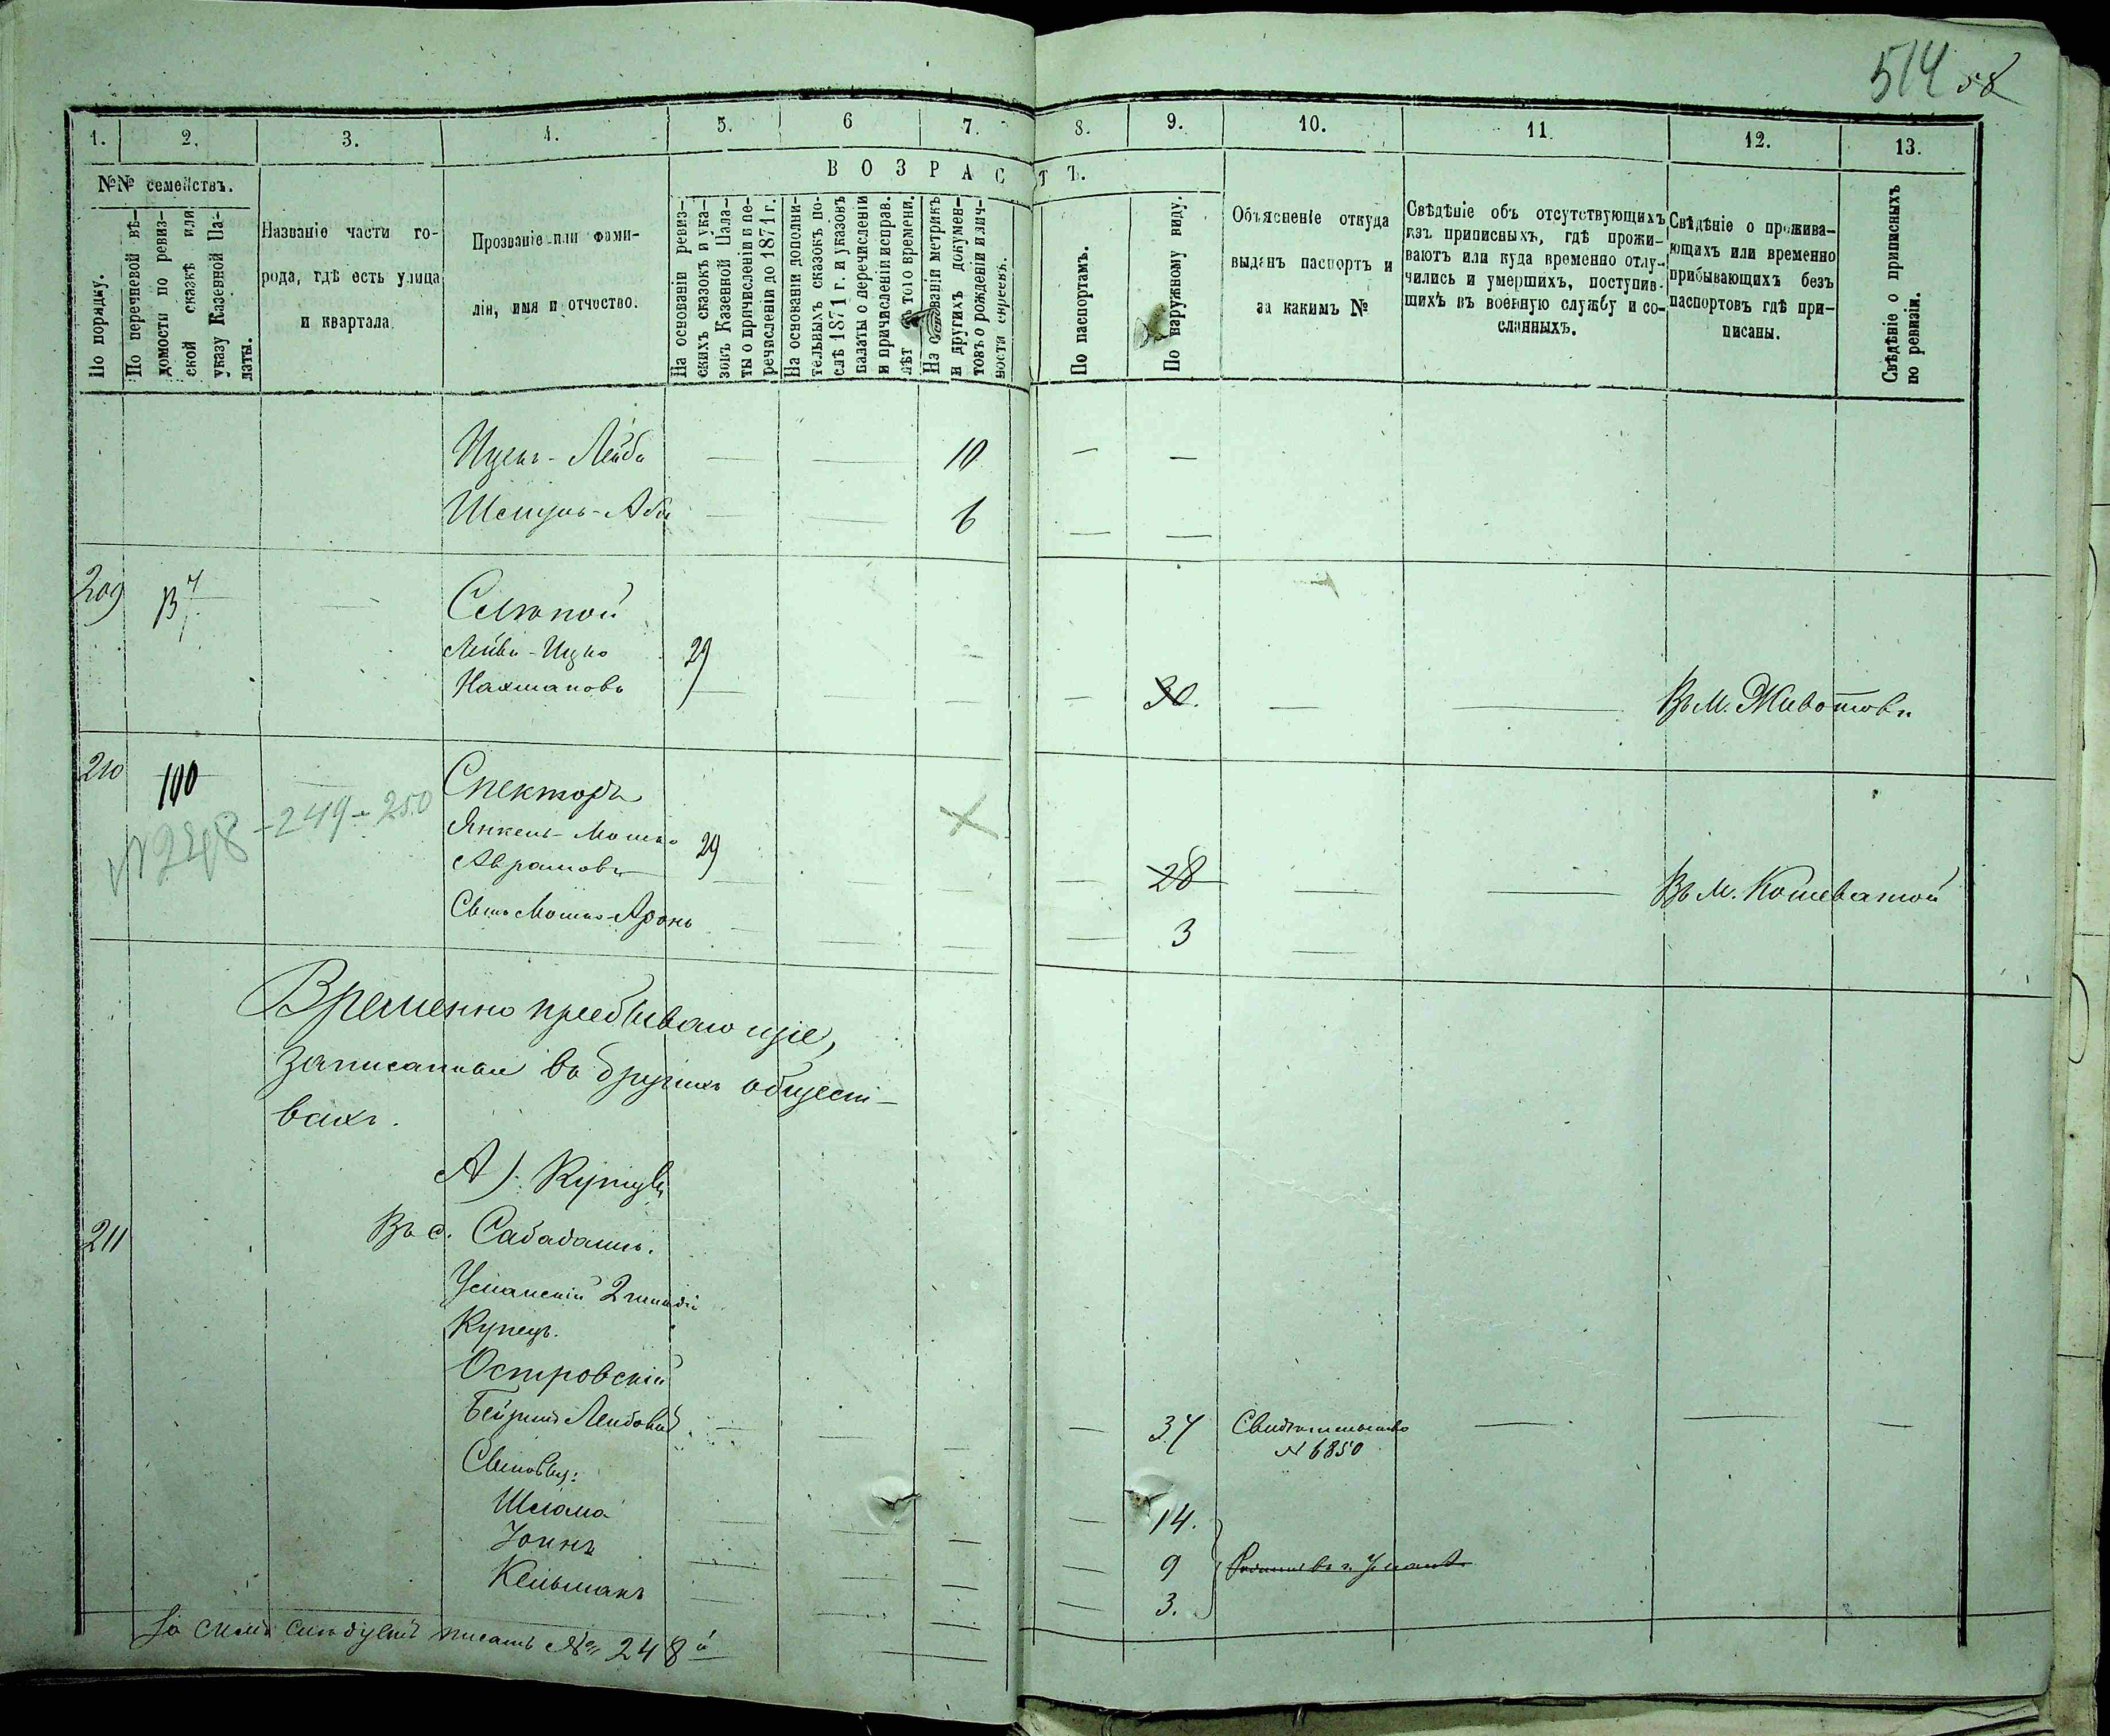 514 58
1. 2. 3. 4. 5. 6 7. 8. 9. 10. 11. 12. 13.
№№ семействъ.
По порядку.
По перечневой вѣ-
домости по ревиз-
ской сказкѣ или
указу Казенной Па-
латы.
Названіе части го-
рода, гдѣ есть улица
и квартала
Прозваніе или фами-
лія, имя и отчество.
ВОЗРАСТЪ.
На основаніи ревиз-
скихъ сказокъ и ука-
зовъ Казенной Пала-
ты о причисленіи и пе-
речисленіи до 1871 г.
На основаніи дополни-
тельныхъ сказокъ по-
слѣ 1871 г. и указовъ
палаты о перечисленіи
и причисленіи исправ.
лѣт того времени.
На основаніи метрикъ
и другихъ докумен-
товъ о рожденіи и лич-
ности евреевъ.
По паспортамъ.
По наружному виду.
Объясненіе откуда
выданъ паспортъ и
за какимъ №
Свѣдѣніе объ отсутствующихъ
изъ приписныхъ, гдѣ прожи-
ваютъ или куда временно отлу-
чились и умершихъ, поступив-
шихъ въ военную службу и со-
сланныхъ.
Свѣдѣніе о прожива-
ющихъ или временно
прибывающихъ безъ
паспортовъ гдѣ при-
писаны.
Свѣдѣніе о приписныхъ
по ревизіи.
Ицекъ-Лейба — — 10 — —
Шмуль-Аба — — 6 — —
209 — Слѣпой
Лейба-Ицко 29
Нахмановъ — — — — 30. — — Въ м. Животовѣ
210 100 — Спекторъ
№ 248 - 249 - 250
Янкель-Мошко 29
Аврамовъ — — — — 28 — — Въ м. Кошеватой
Сынъ Мошко-Аронъ — — — — 3 —
Временно пребывающіе,
записанные въ другихъ общест-
вахъ.
А). Купцы
211 Въ с. Сабадашъ.
Уманскій 2 гильдіи
Купецъ.
Островскій
Лейбовичъ — — — 37 Свидѣтельство — — —
№ 6850
Сыновья:
Шлома — — — 14.
Іонъ — — — — 9 въ г. Умани
Кельманъ — — — — 3.
За симъ слѣдуетъ писать № 248й